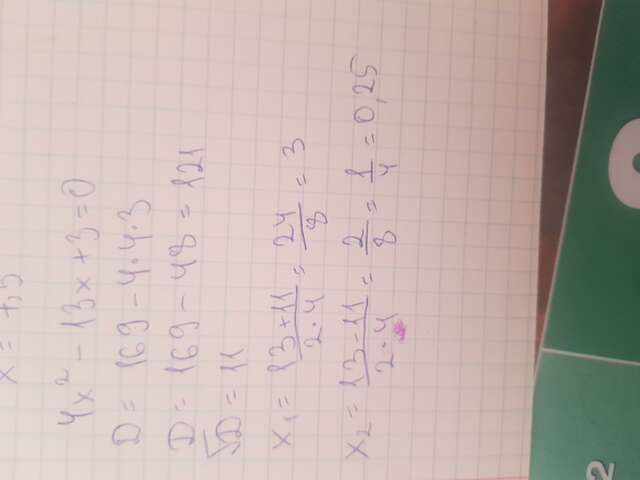 x = 7,5
4x² - 13x + 3 = 0
D = 169 - 4·4·3
D = 169 - 48 = 121
√D = 11
x₁ = 13+11/2·4 = 24/8 = 3
x₂ = 13-11/2·4 = 2/8 = 1/4 = 0,25
2